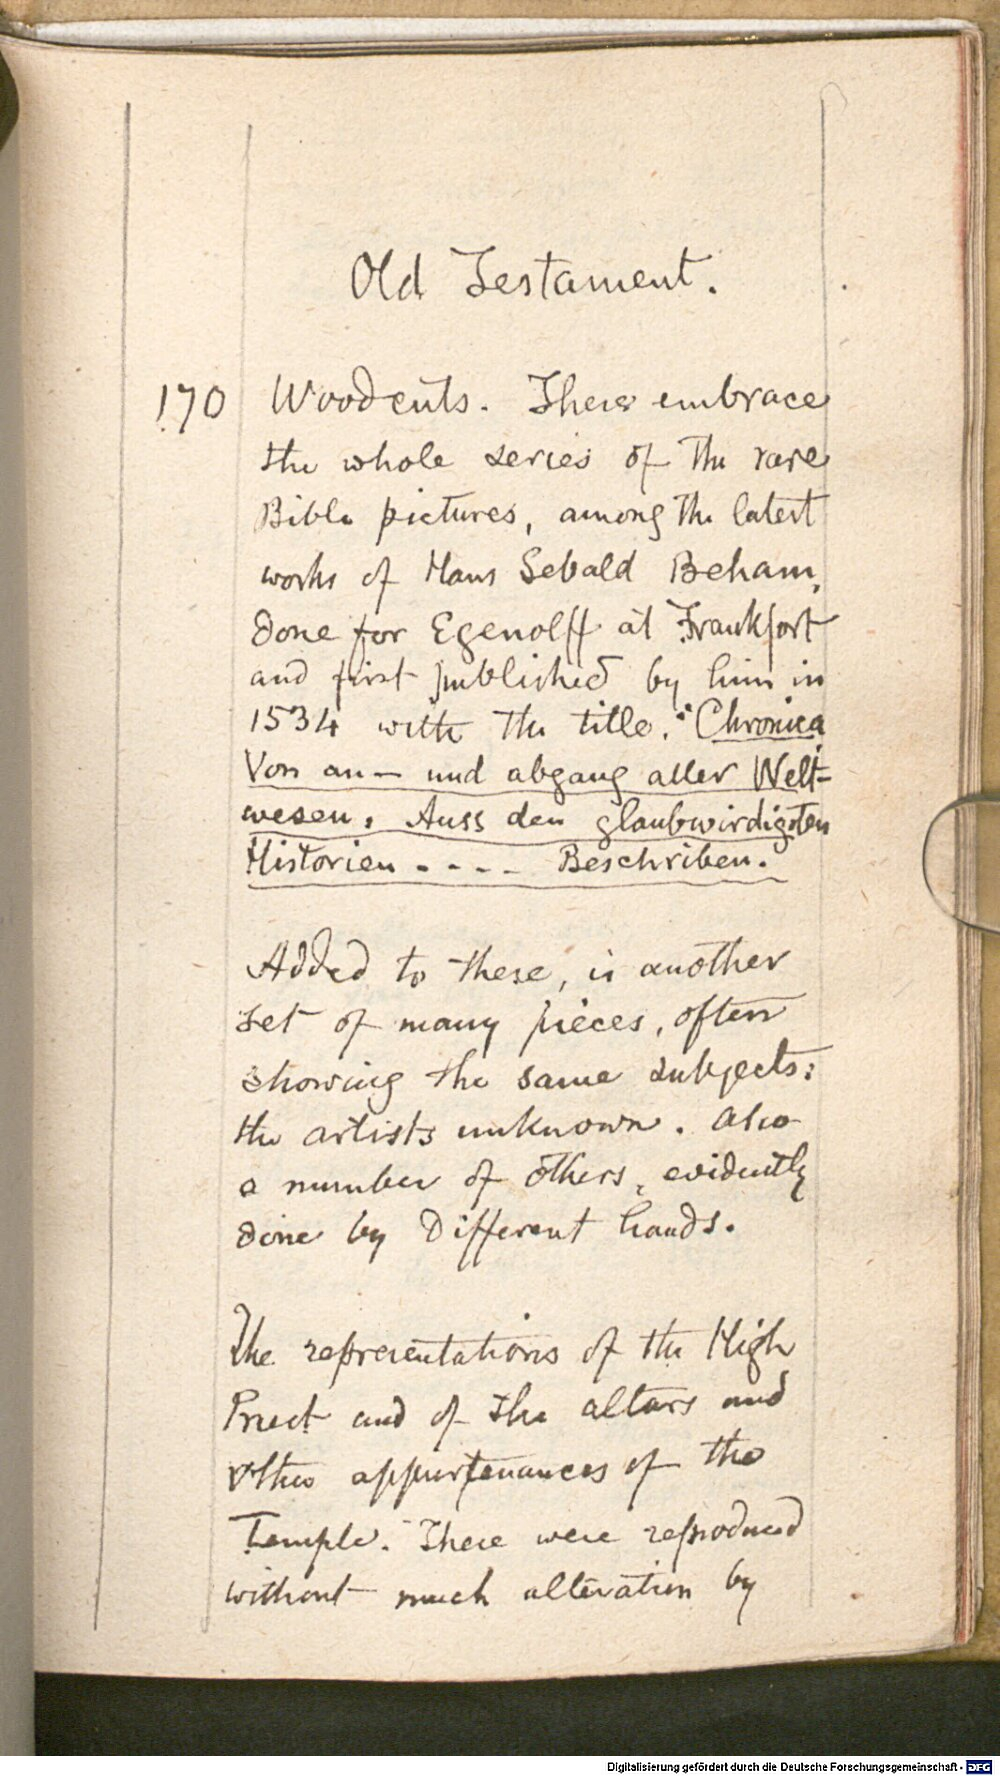 Old Testament.
170 Woodcuts. These embrace
the whole series of the rare
Bible pictures, among the latest
works of Hans Sebald Beham,
done for Egenolff at Frankfort
and first published by him in
1534 with the title. "Chronica
Von an- und abgang aller Welt-
wesen. Auss den glaubwirdigsten
Historien - - - - Beschriben.
Added to these, is another
set of many pieces, often
showing the same subjects:
the artists unknown. Also
a number of others, evidently
done by different hands.
The representations of the High
Priest and of the altars and
other appurtenances of the
Temple. These were reproduced
without much alteration by
Digitalisierung gefördert durch die Deutsche Forschungsgemeinschaft - DFG